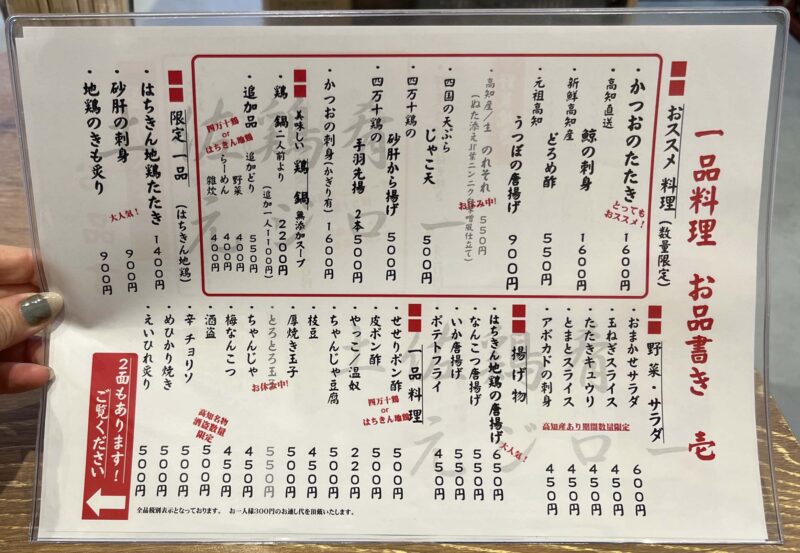 一品料理 お品書き 壱
おススメ 料理(数量限定)
・かつおのたたき 1600円
とっても
おススメ!
・高知直送
鯨の刺身 1600円
・新鮮高知産
どろめ酢 550円
・元祖高知
うつぼの唐揚げ 900円
・高知産/生 のれそれ 550円
お休み中!
・四国の天ぷら
じゃこ天 500円
・四万十鶏の
砂肝から揚げ 500円
・四万十鶏の
手羽先揚 2本 500円
・かつおの刺身(かぎり有) 1600円
美味しい 鶏 鍋 無添加スープ
・鶏 鍋 二人前より 2200円
(追加一人1100円)
・追加品 追加どり 550円
野菜 400円
らーめん 400円
雑炊 400円
四万十鶏
or
はちきん地鶏
限定 一品 (はちきん地鶏)
・はちきん地鶏たたき 1400円
・砂肝の刺身 900円
大人気!
・地鶏のきも炙り 900円
野菜・サラダ
・おまかせサラダ 600円
・玉ねぎスライス 450円
・たたきキュウリ 450円
・とまとスライス 450円
・アボカドの刺身 450円
高知産あり期間数量限定
揚げ物
・はちきん地鶏の唐揚げ 650円
大人気!
・なんこつ唐揚げ 550円
・いか唐揚げ 550円
・ポテトフライ 450円
一品料理
・せせりポン酢 500円
四万十鶏
or
はちきん地鶏
・皮ポン酢 500円
・やっこ/温奴 220円
・ちゃんじゃ豆腐 500円
・枝豆 450円
・厚焼き玉子 500円
・とろとろ玉子 550円
お休み中!
・ちゃんじゃ 450円
・梅なんこつ 450円
・酒盗 500円
高知名物
酒盗数量
限定
・辛 チョリソ 500円
・めひかり焼き 500円
・えいひれ炙り 500円
2面もあります!
ご覧ください
全品税別表示となっております。 お一人様300円のお通し代を頂戴いたします。
土佐鶏肴
元ジロー
土佐鶏肴
元ジロー